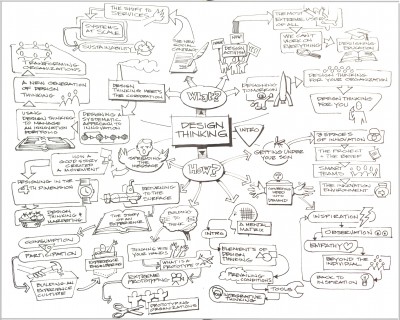 THE SHIFT TO
SERVICES
SYSTEMS
AT SCALE
SUSTAINABILITY
THE NEW
SOCIAL
CONTRACT
DESIGN
ACTIVISM
THE MOST
EXTREME USERS
OF ALL
WE CAN'T
WORK ON
EVERYTHING
DESIGNING
EDUCATION
TRANSFORMING
ORGANIZATIONS
A NEW
GENERATION
OF DESIGN
THINKING
DESIGN
THINKING MEETS
THE CORPORATION
WHAT?
DESIGNING
TOMORROW
DESIGN THINKING
FOR YOUR ORGANIZATION
DESIGN THINKING
FOR YOU
USING
DESIGN THINKING
TO MANAGE
AN INNOVATION
PORTFOLIO
DESIGNING A
SYSTEMATIC
APPROACH TO
INNOVATION
DESIGN
THINKING
INTRO
HOW A
GOOD STORY
CREATED A
MOVEMENT
SPREADING
THE MESSAGE
HOW?
GETTING UNDER
YOUR SKIN
3 SPACES OF
INNOVATION
THE PROJECT
+ THE BRIEF
SMART
TEAMS
THE INNOVATION
ENVIRONMENT
DESIGNING IN THE
4TH DIMENSION
RETURNING TO
THE SURFACE
CONVERTING
NEED INTO
DEMAND
DESIGN
THINKING +
MARKETING
THE STORY
OF AN
EXPERIENCE
BUILDING
TO
THINK
INTRO
A MENTAL
MATRIX
INSPIRATION
OBSERVATION
EMPATHY
BEYOND THE
INDIVIDUAL
BACK TO
INSPIRATION
CONSUMPTION
PARTICIPATION
EXPERIENCE
ENGINEERING
BUILDING AN
EXPERIENCE
CULTURE
THINKING WITH
YOUR HANDS
WHAT IS A
PROTOTYPE?
EXTREME
PROTOTYPING
PROTOTYPING
ORGANIZATIONS
ELEMENTS OF
DESIGN
THINKING
PREVAILING
CONDITIONS
TOOLS
INTEGRATIVE
THINKING